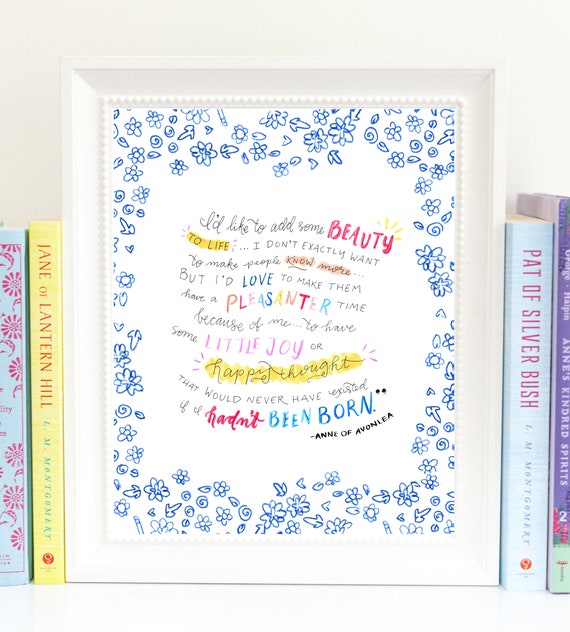 I'd like to add some BEAUTY
TO LIFE... I DON'T EXACTLY WANT
to make people KNOW more...
BUT I'D LOVE TO MAKE THEM
have a PLEASANTER TIME
because of me... to have
some LITTLE JOY OR
happy thought
THAT WOULD NEVER HAVE existed
if I hadn't BEEN BORN."
-ANNE OF AVONLEA
JANE OF LANTERN HILL
L. M. MONTGOMERY
PAT OF SILVER BUSH
L. M. MONTGOMERY
ANNE'S KINDRED SPIRITS
2